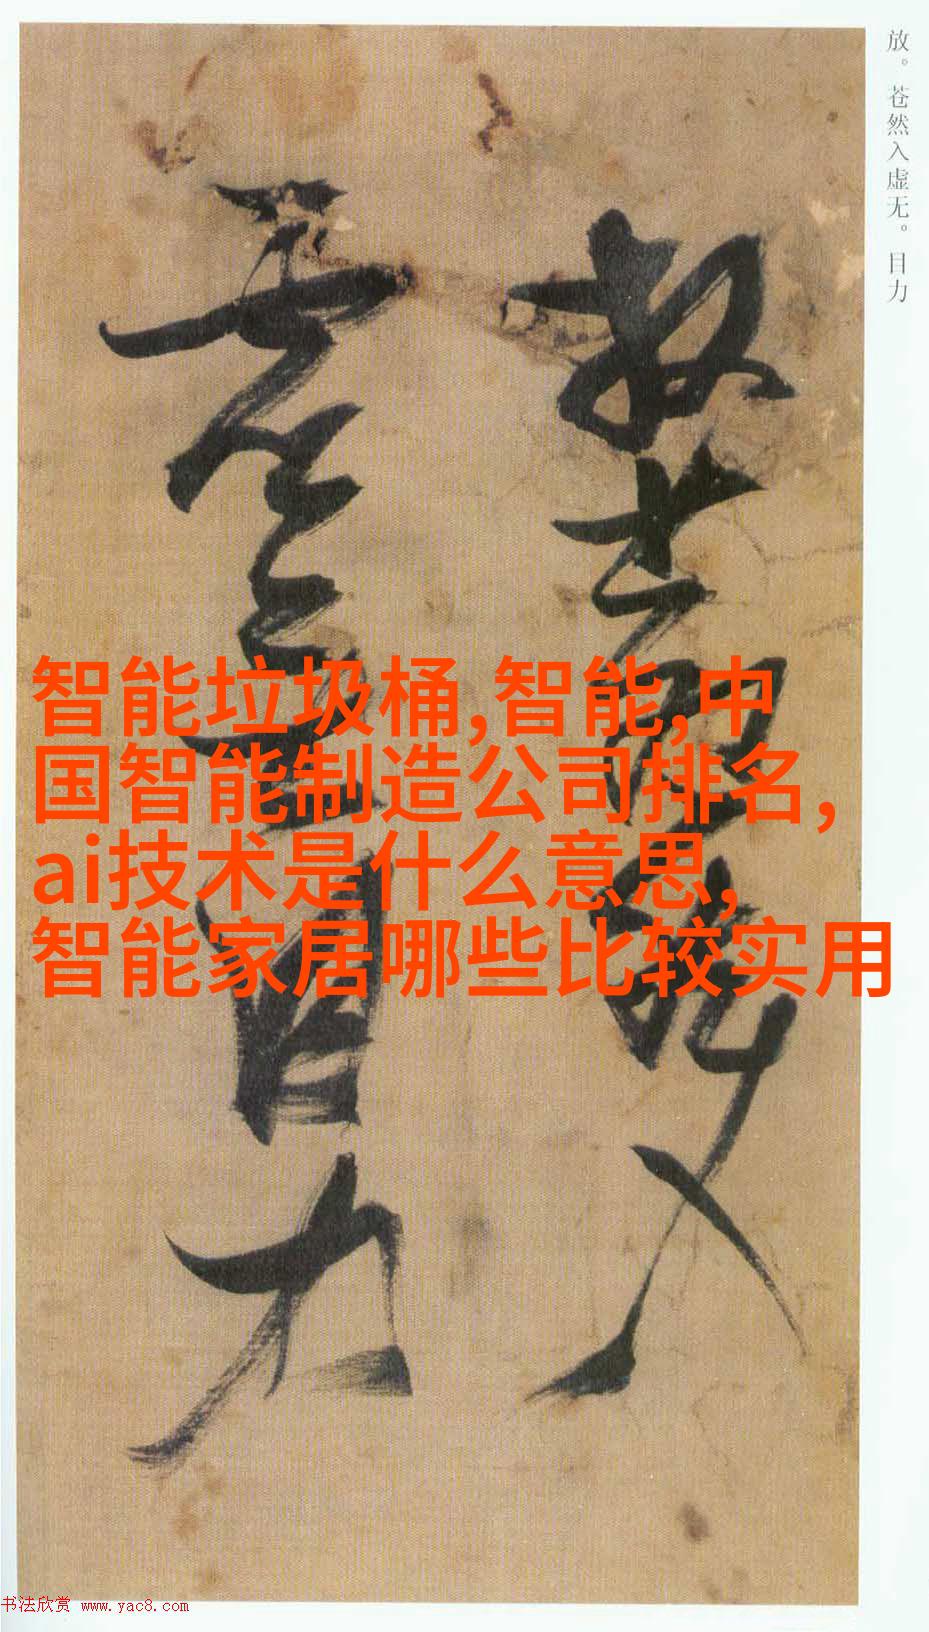 放。苍然入虚无。目力
放苍然入
虚无目力
智能垃圾桶,智能,中
国智能制造公司排名,
ai技术是什么意思,
智能家居哪些比较实用
书法欣赏 www.yac8.com